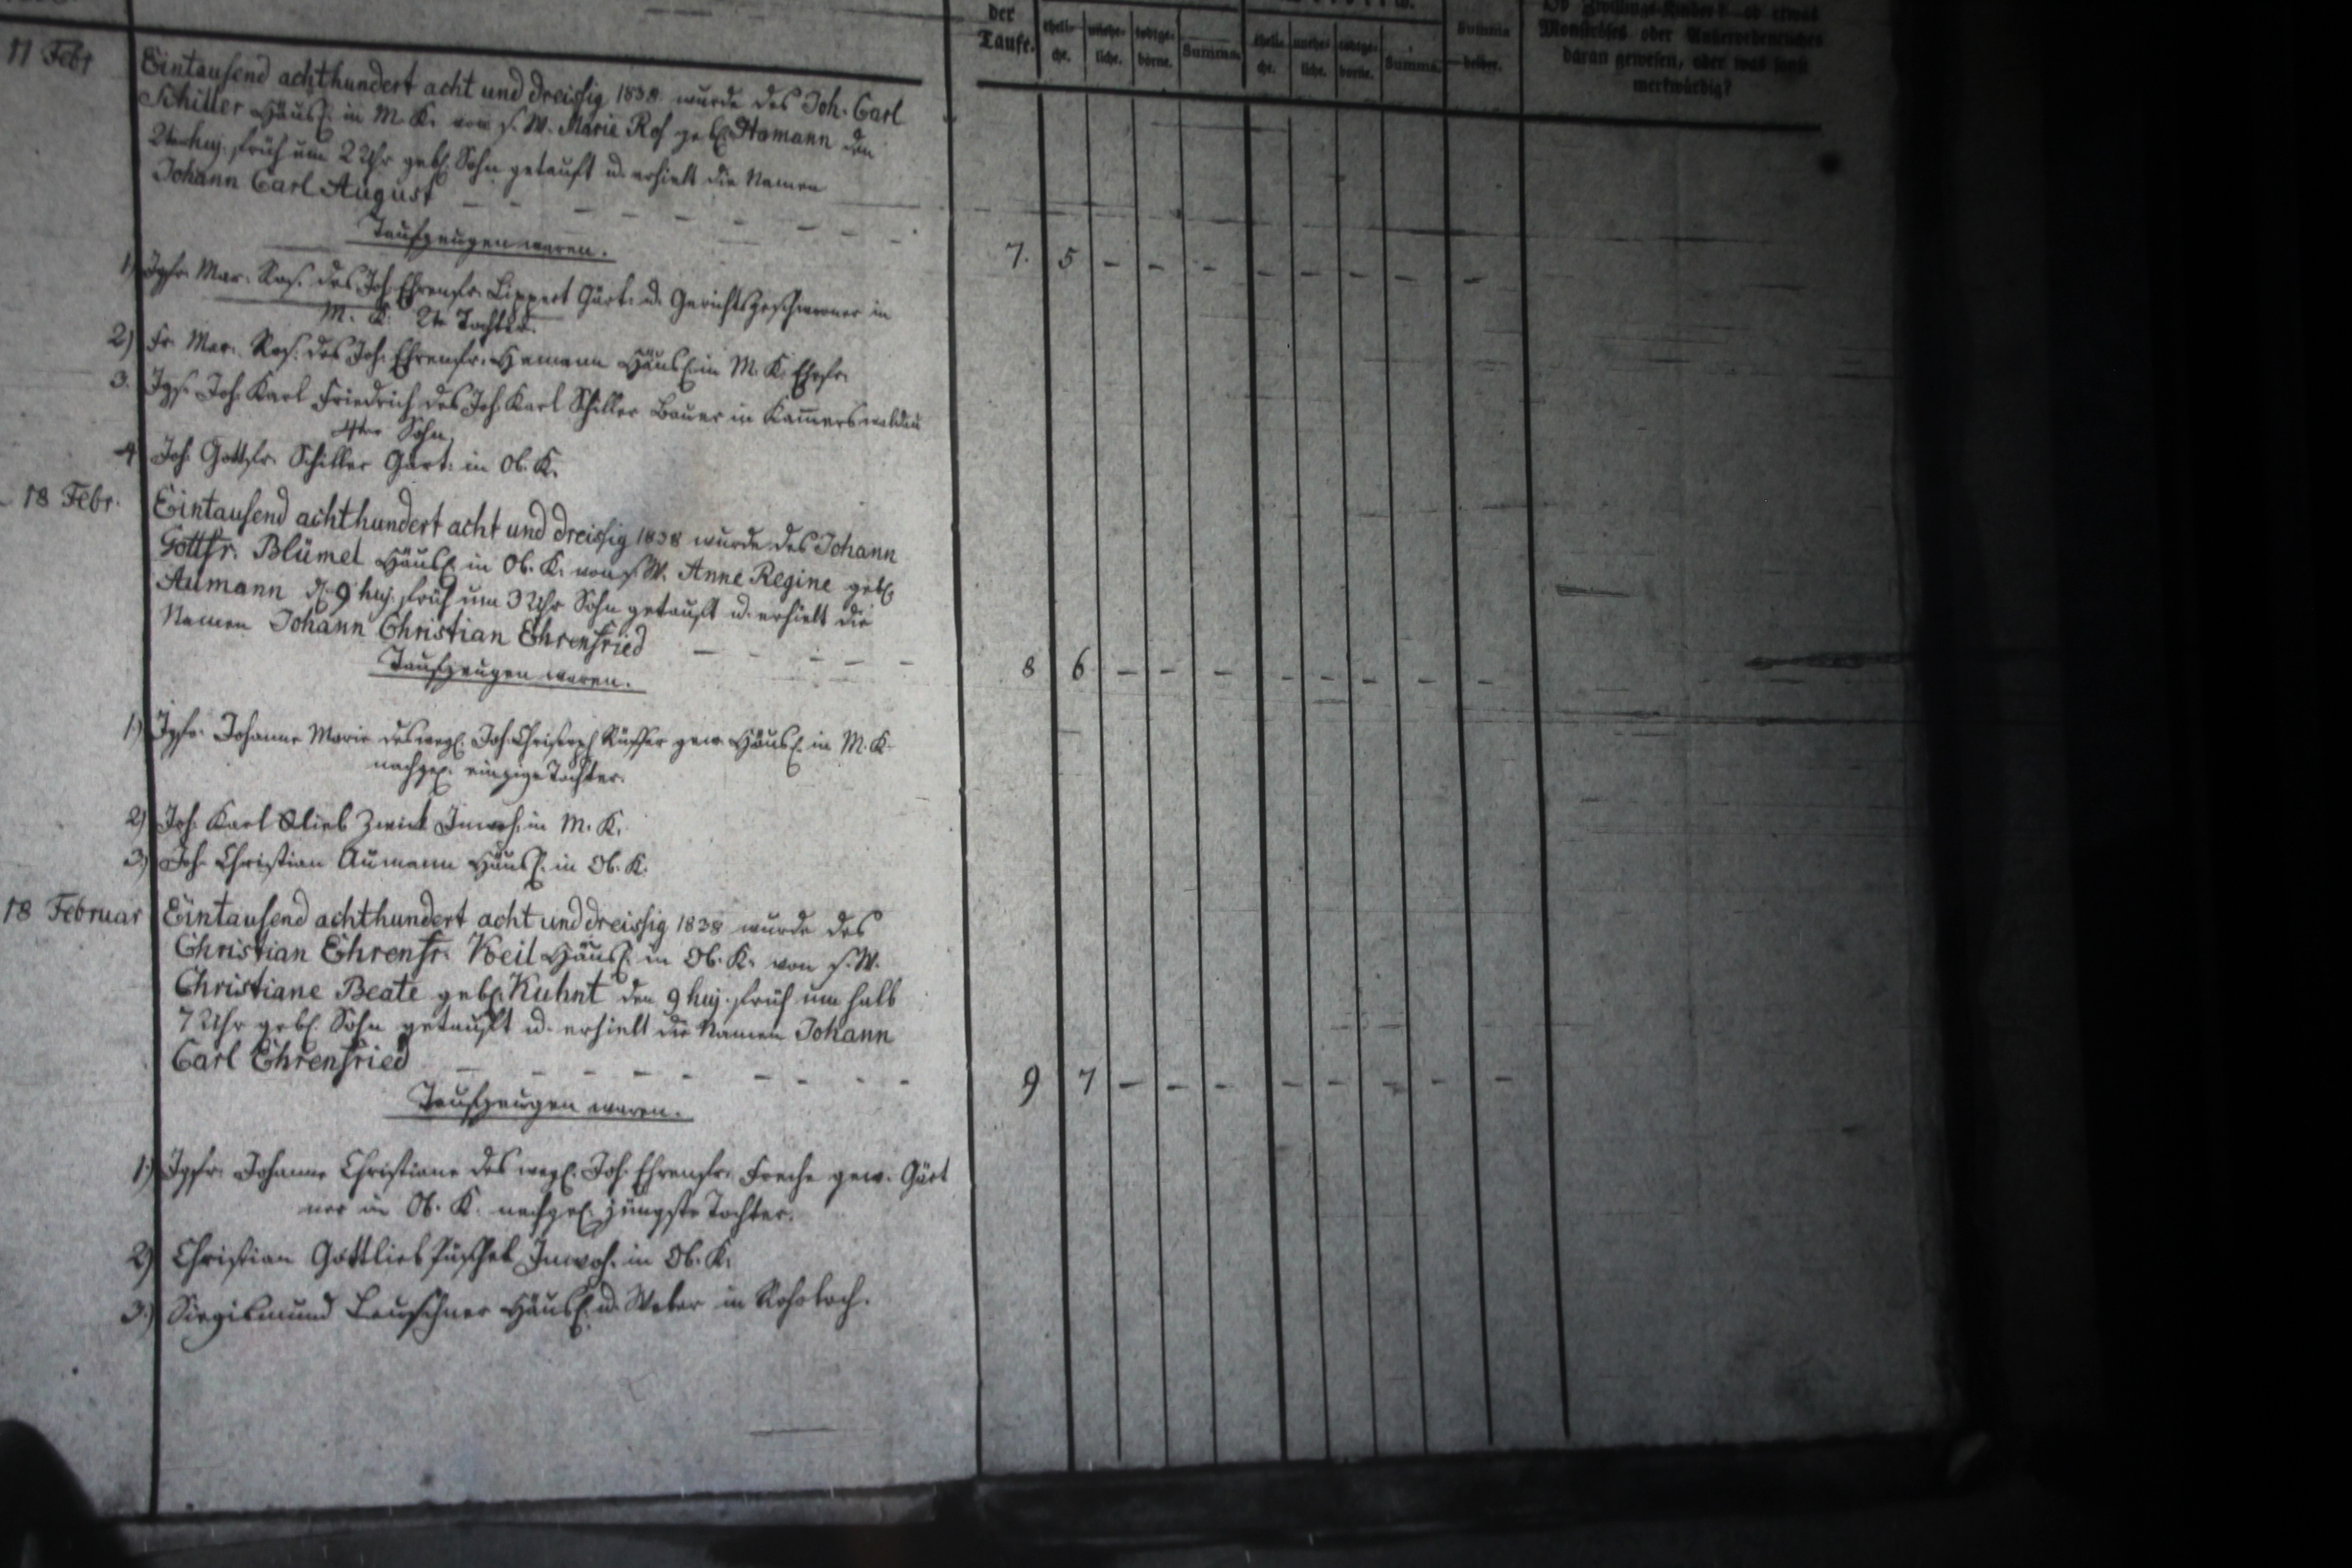 der
Taufe.
eheli- unehe- todtge- Summa. eheli- unehe- todtge- Summa. Summa
che. liche. borne. che. liche. borne. beider.
Ob Zwillings-Kinder? ob etwas
Monströses oder Außerordentliches
daran gewesen, oder was sonst
merkwürdig?
11 Febr Eintausend achthundert acht und dreissig 1838 wurde des Joh. Carl
Schiller Häusl. in M. K. von s. W. Marie Ros geb. Hamann den
2ten huj. früh um 2 Uhr geb. Sohn getauft u. erhielt die Namen
Johann Carl August
Taufzeugen waren.
7. 5 - - - - - - - -
1) Jgfr. Mar. Ros. des Joh. Ehrenfr. Lippert Gärt. u. Gerichtsgeschworner in
M. K. 2te Tochter.
2) Fr. Mar. Ros. des Joh. Ehrenfr. Hamann Häusl. in M. K. Ehefr.
3. Jgs. Joh. Karl Friedrich des Joh. Karl Schiller Bauer in Kam̅erswaldau
4ter Sohn.
4 Joh. Gottfr. Schiller Gärt. in Ob. K.
18 Febr. Eintausend achthundert acht und dreissig 1838 wurde des Johann
Gottfr. Blümel Häusl. in Ob. K. von s. W. Anne Regine geb.
Aumann d. 9 huj. früh um 3 Uhr Sohn getauft u. erhielt die
Namen Johann Christian Ehrenfried
Taufzeugen waren.
8 6 - - - - - - - -
1.) Jgfr. Johanne Marie des wegl. Joh. Christoph Rüffer gew. Häusl. in M. K.
nachgel. einzige Tochter.
2) Joh. Karl Glieb Zwick Inwoh. in M. K.
3) Joh. Christian Aumann Häusl. in Ob. K.
18 Februar Eintausend achthundert acht und dreissig 1838 wurde des
Christian Ehrenfr. Keil Häusl. in Ob. K. von s. W.
Christiane Beate geb. Kuhnt den 9 huj. früh um halb
7 Uhr geb. Sohn getauft u. erhielt die Namen Johann
Carl Ehrenfried
9 7 - - - - - - - -
Taufzeugen waren.
1.) Jgfr. Johanne Christiane des wegl. Joh. Ehrenfr. Freche gew. Gärt
ner in Ob. K. nachgel. jüngste Tochter.
2) Christian Gottlieb Püschel Inwoh. in Ob. K.
3.) Siegismund Leuschner Häusl. u. Weber in Rohrlach.